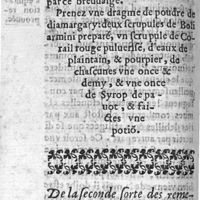 par ce breuuaige.
Prenez vne dragme de poudre de
diamargary: deux scrupules de Boli
armini preparé, vn scrupule de Co-
rail rouge puluerisé, d'eaux de
plaintain, & pourpier, de
chascunes vne once &
demy, & vne once
de Syrop de pa-
uot, & fai-
ctes vne
potiō.
De la seconde sorte des reme-